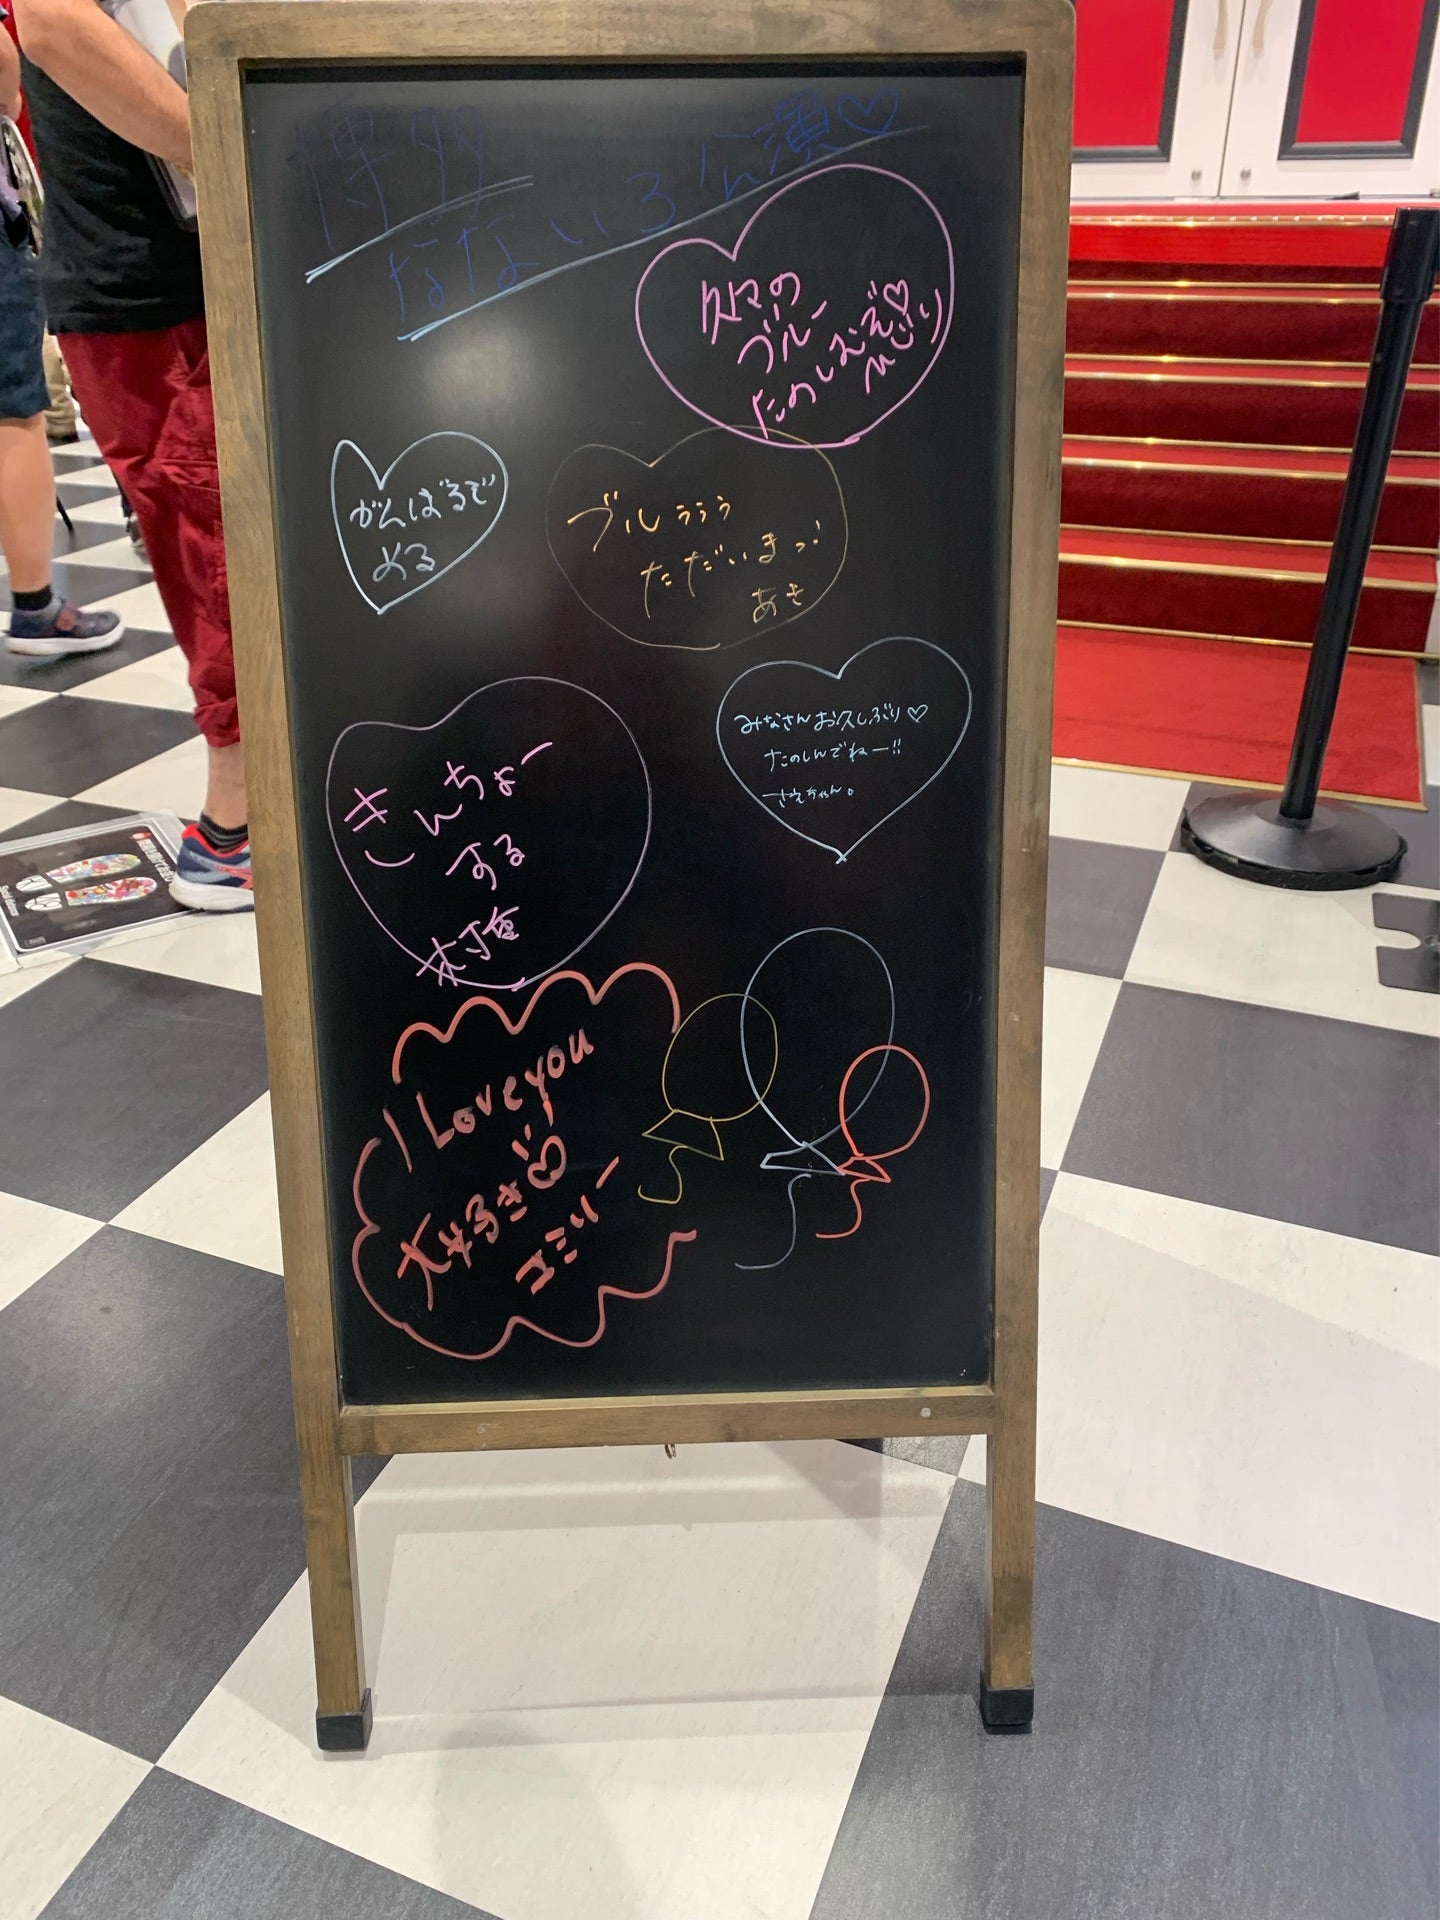 博多
なないろ公演♡
久々の
ブルー
たのしむぞ♡
ひじり
がんばるで
める
ブルぅぅぅ
ただいまっ!
あき
みなさんお久しぶり♡
たのしんでねー!!
さえちゃん。
きんちょー
する
I Love you
大好き♡
エミリー